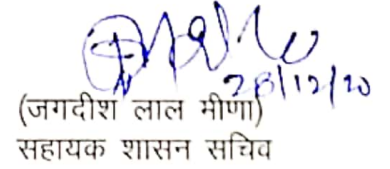 28/12/20
(जगदीश लाल मीणा)
सहायक शासन सचिव